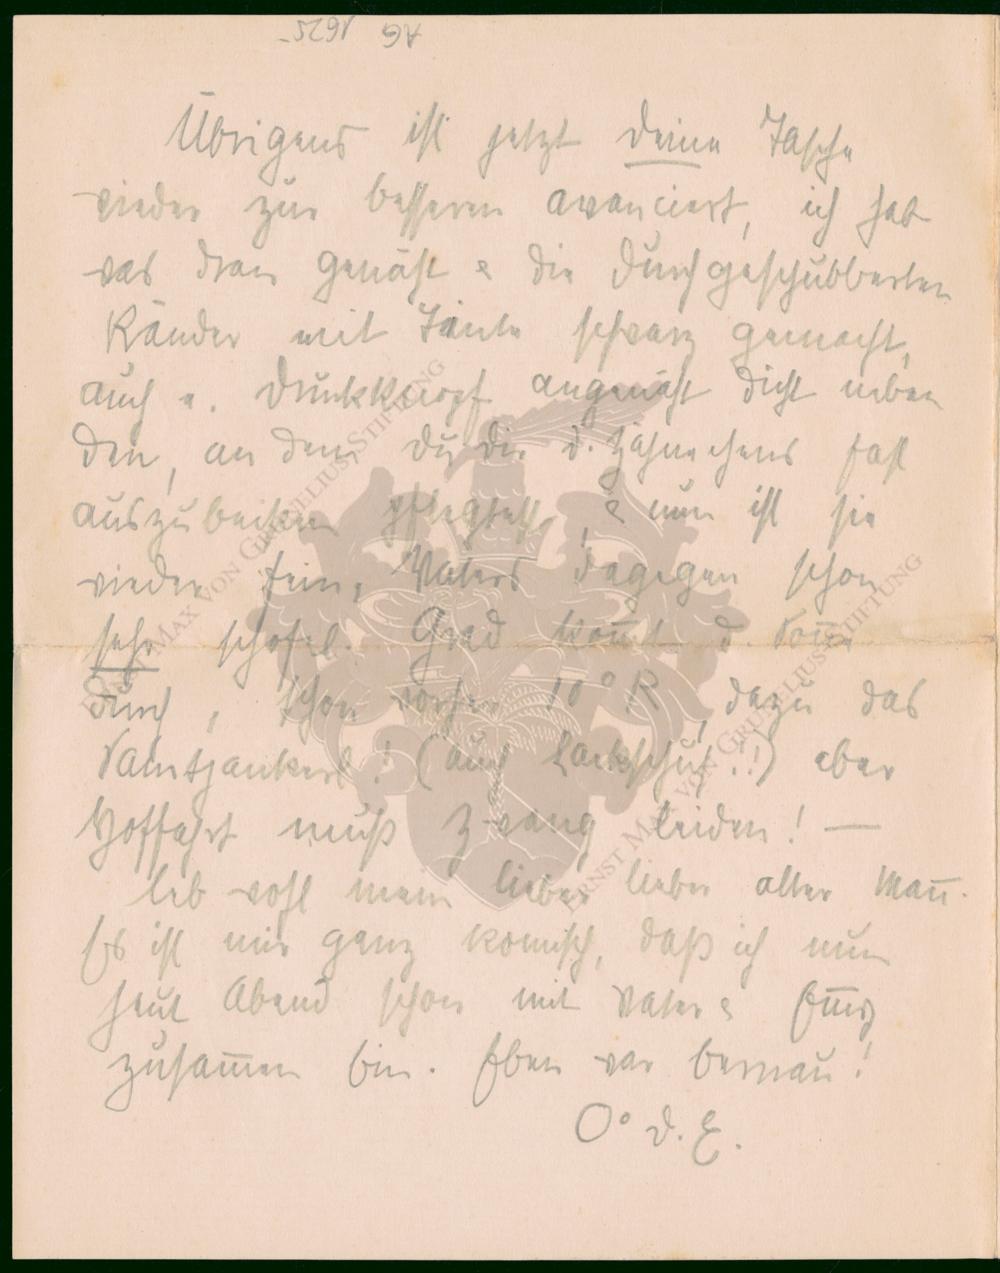 AG 1625
Übrigens ist jetzt deine Tasche
wieder zur besseren avanciert, ich hab
was dran genäht & die durchgeschubberten
Ränder mit Tinte schwarz gemacht,
auch e. Druckknopf angenäht dicht neben
den, an dem du dir d. Zähnechens fast
auszubeißen pflegtest, & nun ist sie
wieder fein, Vaters dagegen schon
sehr schofel. Grad kom̅t d. Son̅e
durch, schon vorher 10° R, dazu das
Samtjankerl! (auch Lackschuh!!) aber
Hoffahrt muß Zwang leiden! —
leb wohl mein lieber lieber alter Man̅.
Es ist mir ganz komisch, daß ich nun
heut Abend schon mit Vater &
zusam̅en bin. Eben war Bernau!
O° d. E.
ERNST MAX VON GRUNELIUS-STIFTUNG
ERNST MAX VON GRUNELIUS-STIFTUNG